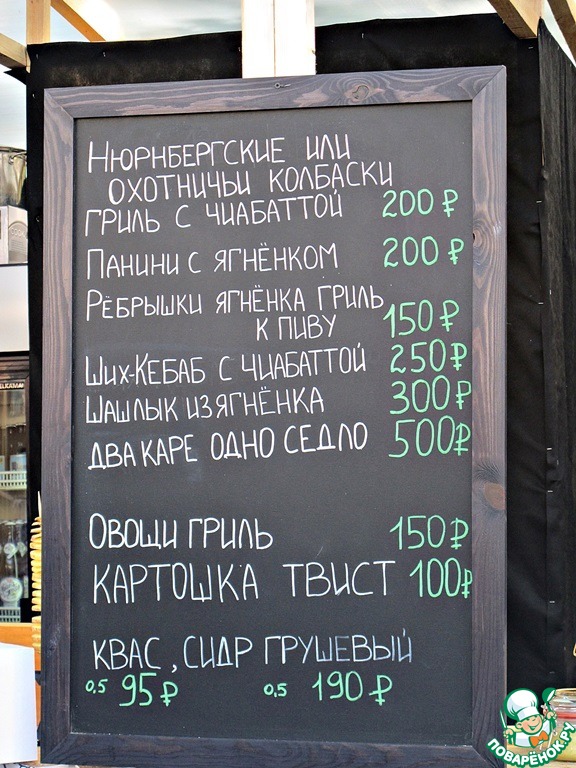 Нюрнбергские или
охотничьи колбаски
гриль с чиабаттой 200 ₽
Панини с ягнёнком 200 ₽
Рёбрышки ягнёнка гриль
к пиву 150 ₽
Ших-Кебаб с чиабаттой 250 ₽
Шашлык из ягнёнка 300 ₽
два каре одно седло 500 ₽
Овощи гриль 150 ₽
Картошка твист 100 ₽
Квас, сидр грушевый
0,5 95 ₽ 0,5 190 ₽
ПОВАРЁНОК.РУ